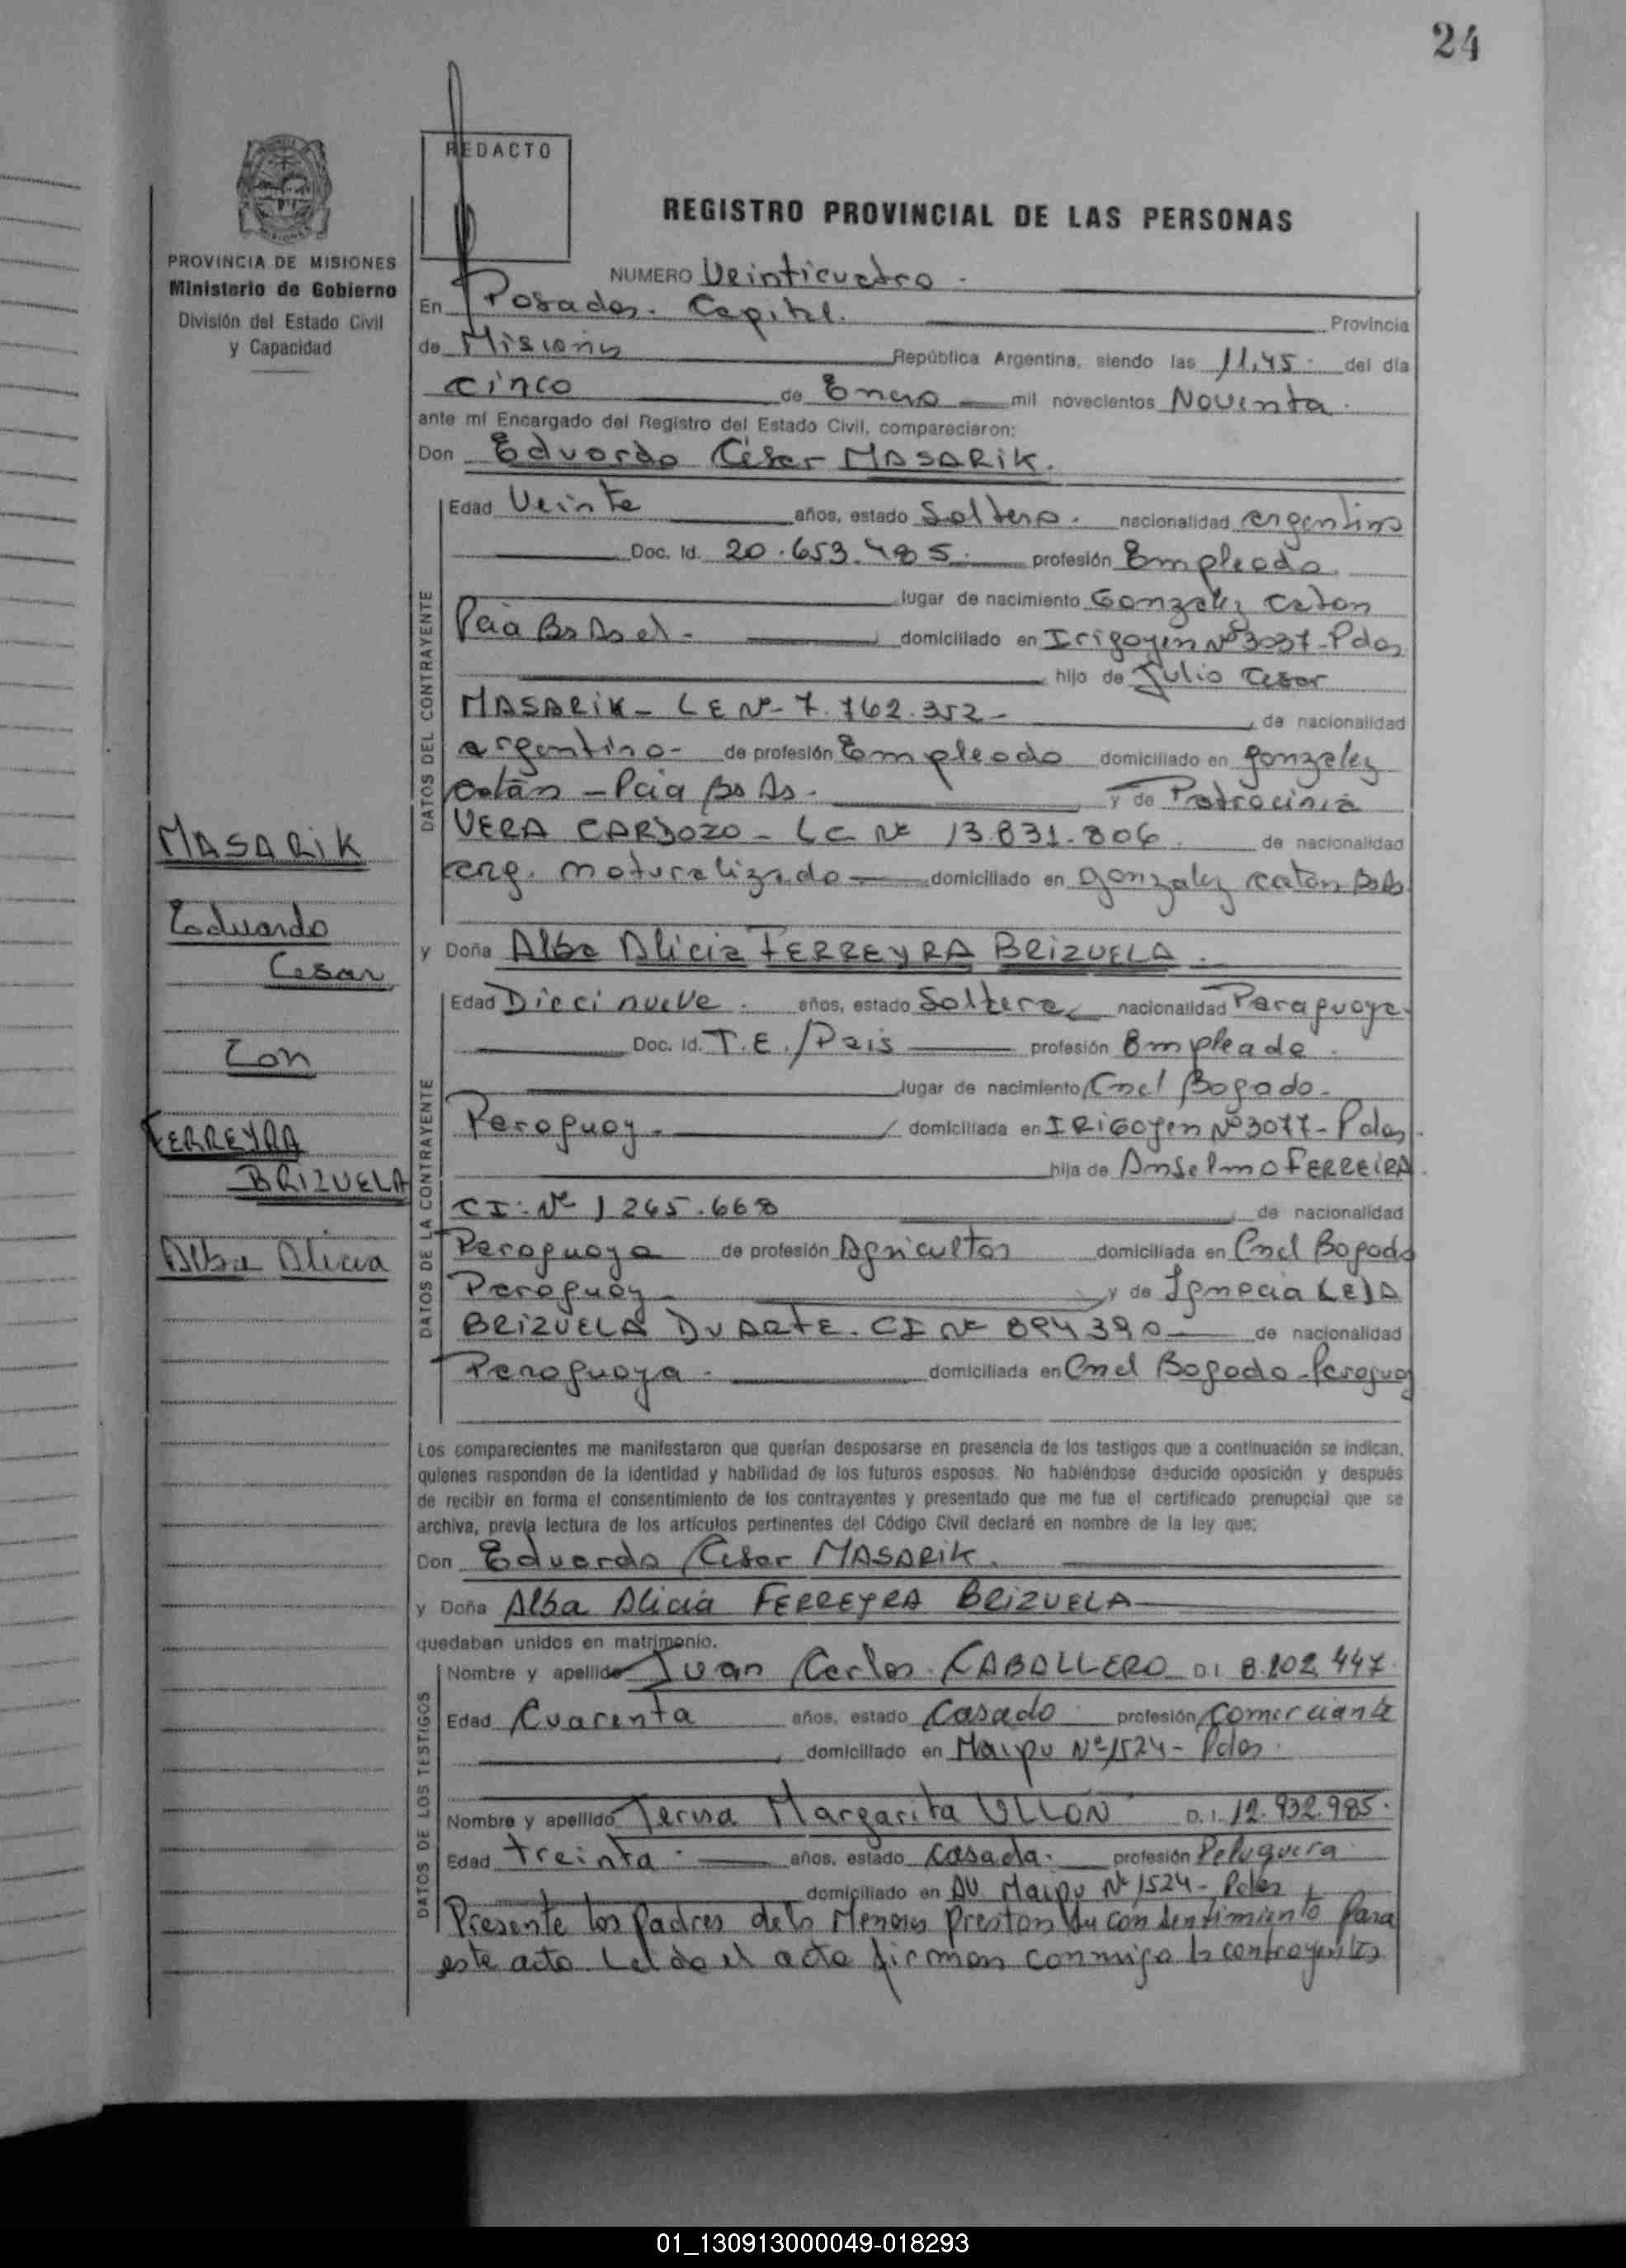 24
REDACTO
REGISTRO PROVINCIAL DE LAS PERSONAS
PROVINCIA DE MISIONES
Ministerio de Gobierno
División del Estado Civil
y Capacidad
NUMERO Veinticuatro -
En Posadas. Capital. Provincia
de Misiones República Argentina, siendo las 11,45 del día
cinco de Enero mil novecientos Noventa.
ante mí Encargado del Registro del Estado Civil, comparecieron:
Don Eduardo César MASARIK.
DATOS DEL CONTRAYENTE
Edad Veinte años, estado Soltero. nacionalidad argentino
Doc. Id. 20.653.485. profesión Empleado.
lugar de nacimiento Gonzalez Caton
Pcia Bs As el - domiciliado en Irigoyen Nº 3037 - Pdas
hijo de Julio Cesar
MASARIK - LE Nº 7.762.352 - , de nacionalidad
argentino - de profesión Empleado domiciliado en Gonzalez
Catán - Pcia Bs As. y de Patrocinia
VERA CARDOZO - LC Nº 13.831.806. de nacionalidad
arg. naturalizada domiciliado en Gonzalez Caton Bs As
y Doña Alba Alicia FERREYRA BRIZUELA.
DATOS DE LA CONTRAYENTE
Edad Diecinueve. años, estado Soltera nacionalidad Paraguaya.
Doc. Id. T.E./Pais profesión Empleada.
lugar de nacimiento Cnel Bogado -
Paraguay - domiciliada en IRIGOyen Nº 3077 - Pdas.
hija de Anselmo FERREIRA.
CI: Nº 1265.668 de nacionalidad
Paraguaya de profesión Agricultor domiciliada en Cnel Bogado
Paraguay y de Ignacia LEJA
BRIZUELA DUARTE. CI Nº 894390 de nacionalidad
Paraguaya - domiciliada en Cnel Bogado - Paraguay
MASARIK
Eduardo
Cesar
Con
FERREYRA
BRIZUELA
Alba Alicia
Los comparecientes me manifestaron que querían desposarse en presencia de los testigos que a continuación se indican,
quienes responden de la identidad y habilidad de los futuros esposos. No habiéndose deducido oposición y después
de recibir en forma el consentimiento de los contrayentes y presentado que me fue el certificado prenupcial que se
archiva, previa lectura de los artículos pertinentes del Código Civil declaré en nombre de la ley que;
Don Eduardo César MASARIK.
y Doña Alba Alicia FERREYRA BRIZUELA
quedaban unidos en matrimonio.
DATOS DE LOS TESTIGOS
Nombre y apellido Juan Carlos CABALLERO D I 8.202.447.
Edad Cuarenta años, estado Casado profesión Comerciante
domiciliado en Maipu Nº 1524 - Pdas.
Nombre y apellido Teresa Margarita ULLON D. I. 12.932.985.
Edad treinta. años, estado casada. profesión Peluquera
domiciliado en AV. Maipu Nº 1524 - Pdas
Presente los Padres de los Menores prestan su consentimiento para
este acto. Leida el acta firman conmigo los contrayentes
01_130913000049-018293